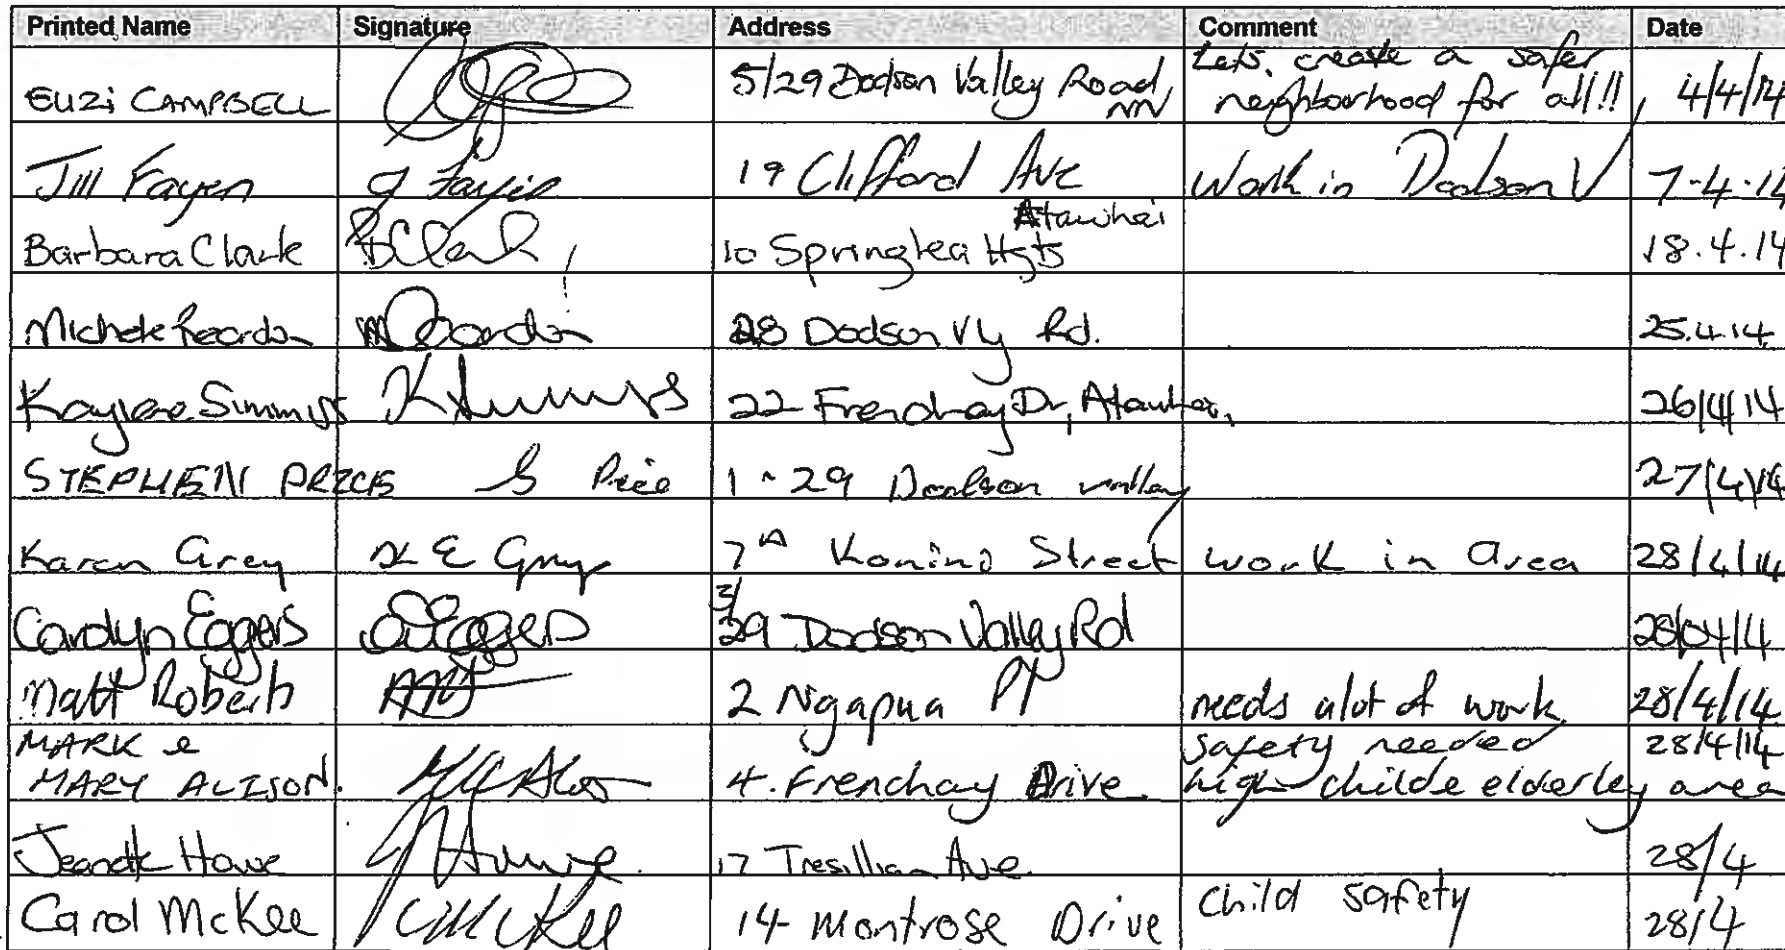 Printed Name Signature Address Comment Date
EUZi CAMPBELL 5/29 Dodson Valley Road, NN Lets create a safer neighborhood for all!! 4/4/14
Jill Fayen J Fayen 19 Clifford Ave Work in Dodson V 7-4-14
Barbara Clark B Clark 10 Springlea Hgts Atawhai 18.4.14
Michele Reardon M Reardon 28 Dodson Vy Rd. 25.4.14
Kaylene Simmys 22 Frenchay Dr, Atawhai, 26/4/14
STEPHEN PRICE S Price 1-29 Dodson valley 27/4/14
Karen Grey K E Grey 7A Konini Street work in area 28/4/14
Carolyn Eggers Eggers 3/29 Dodson Valley Rd 28/04/14
Matt Roberts 2 Ngapua Pl needs alot of work 28/4/14
MARK & MARY ALISON. 4. Frenchay Drive. safety needed high child & elderley area 28/4/14
Jeanette Howe J Howe 17 Tresillian Ave. 28/4
Carol McKee C McKee 14 Montrose Drive child safety 28/4